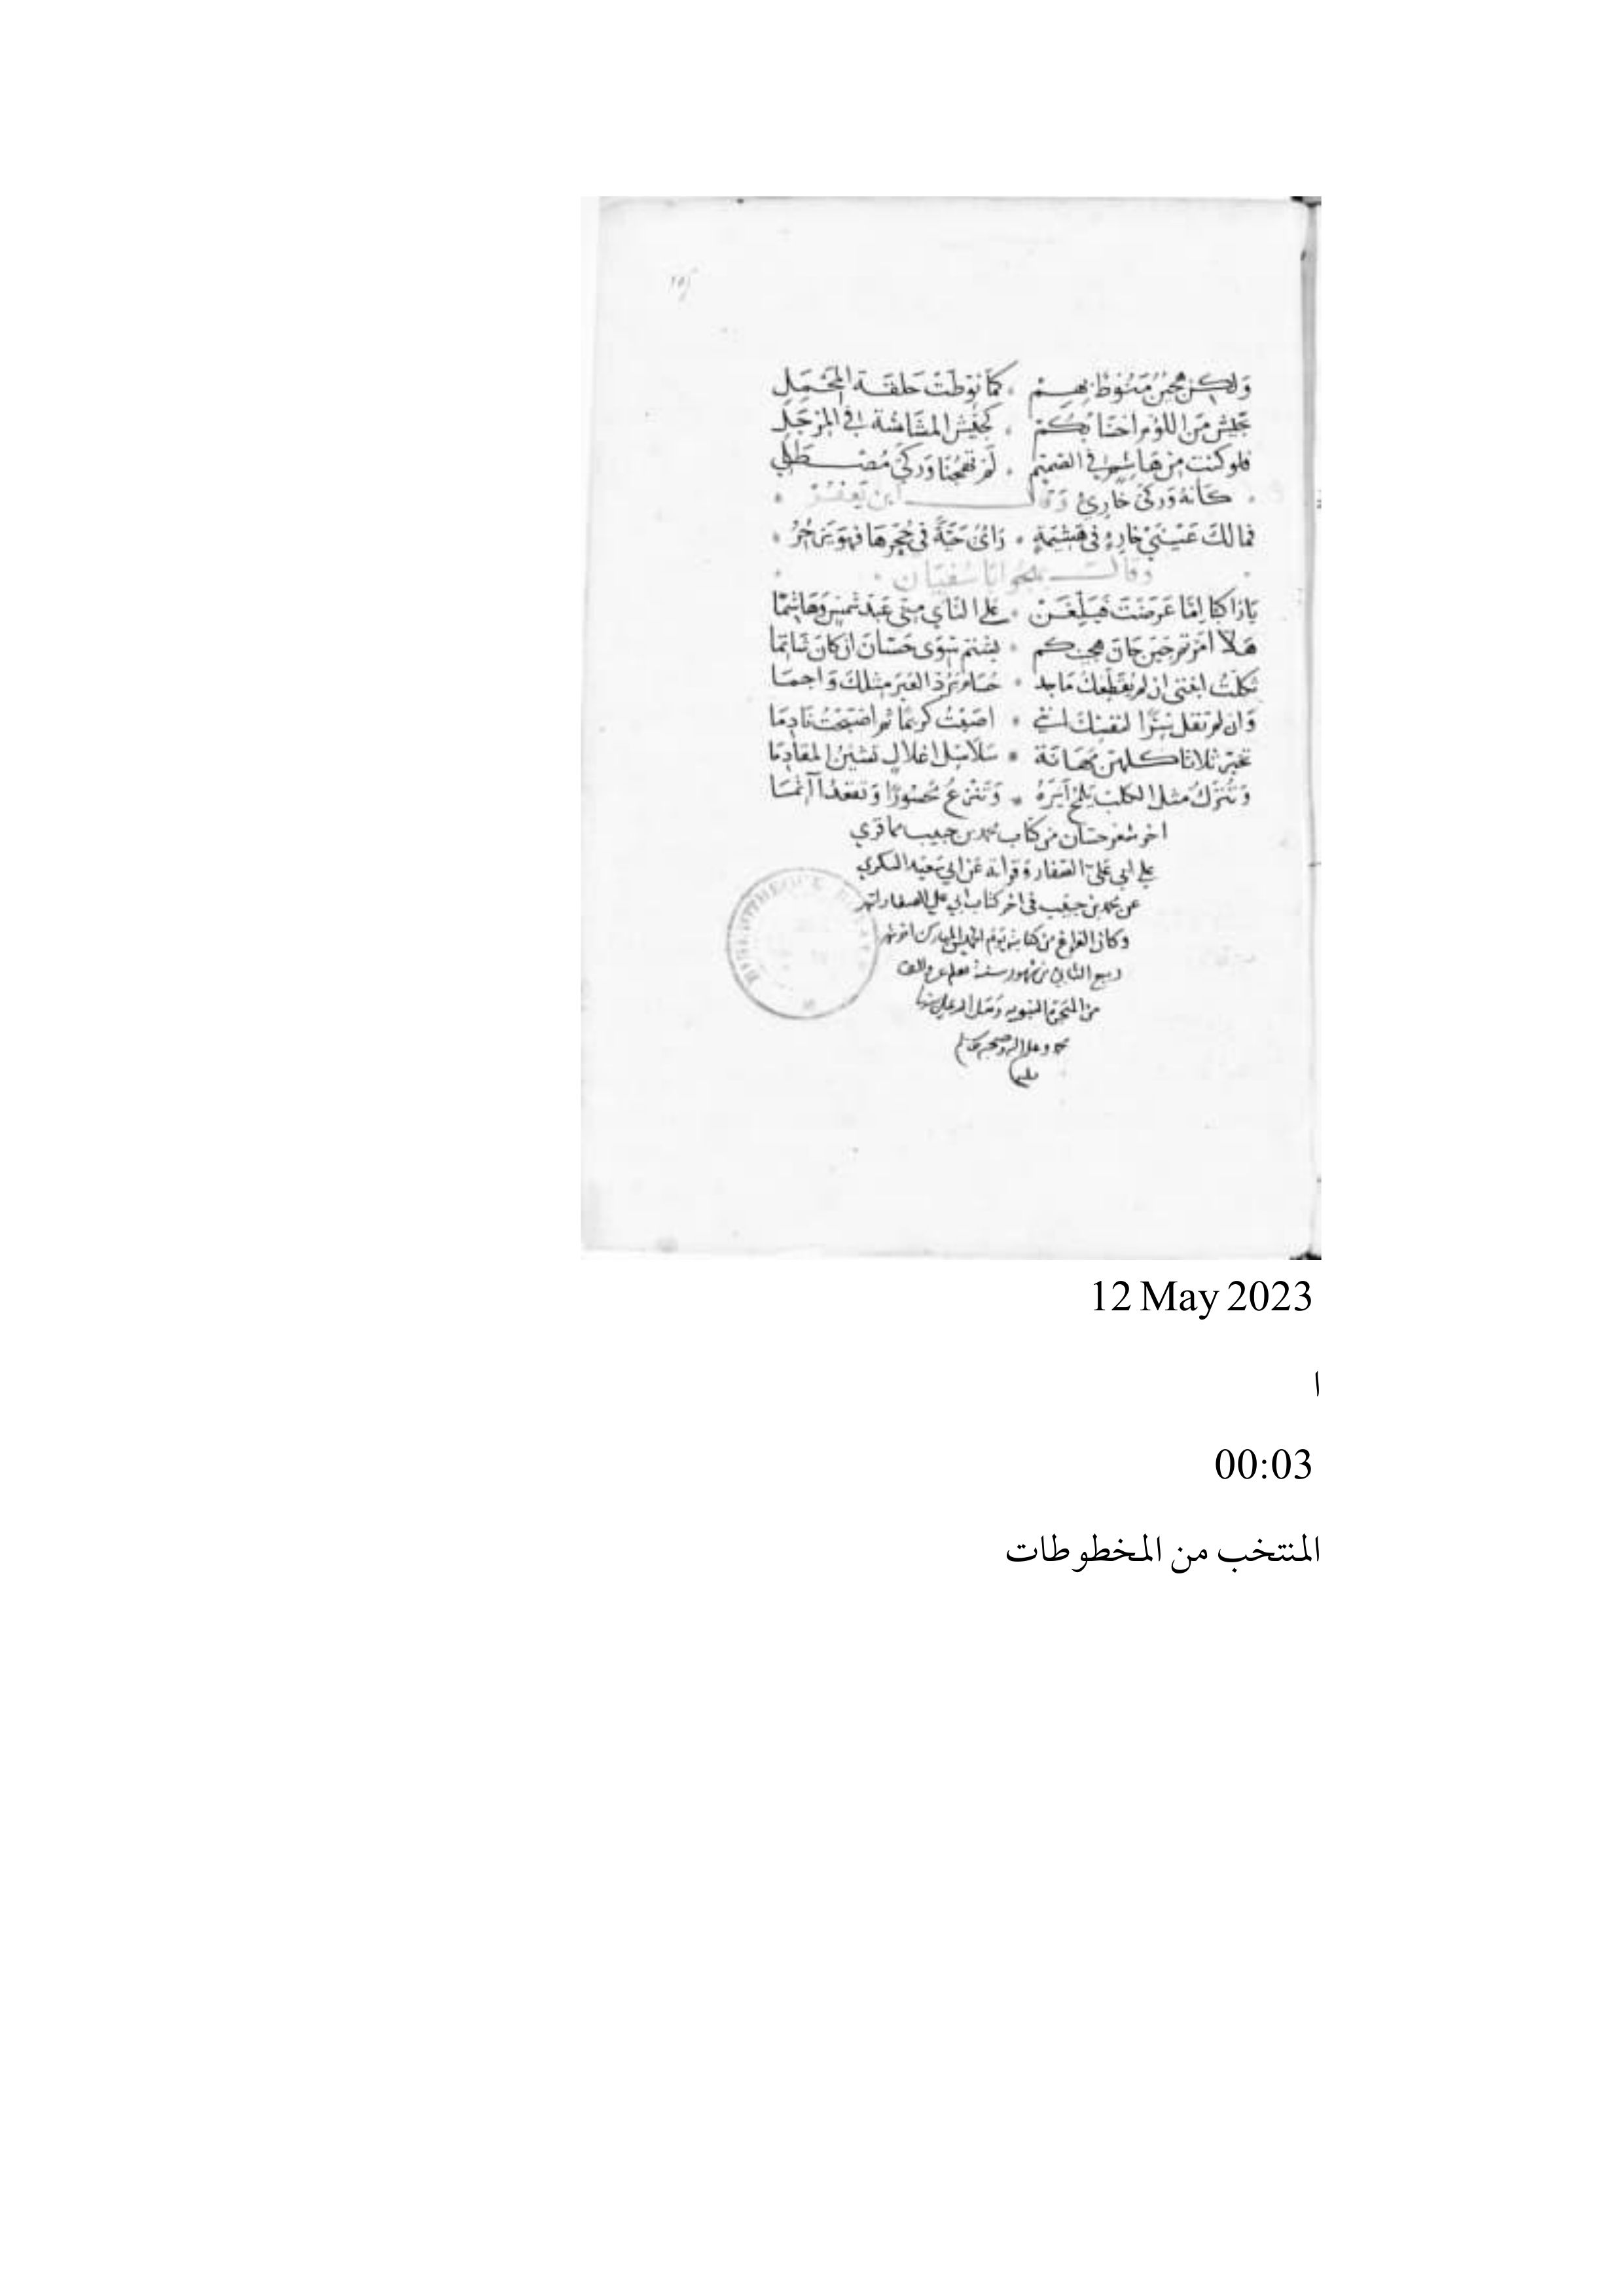 ولكن هجين منوط بهم . كما نوطت حلقة المحمل
تجيش من اللؤم احسابكم . كجيش المشاشة في المرجل
فلو كنت من هاشم في الصميم . لم تهجنا وركي مصطلي
. كانه وركي خاري وقال ابن يعفر .
فمالك عيني خاري في هشيمة . راى حية في جحرها فهو ينجحر .
وقال يهجو ابا سفيان
يا راكبا اما عرضت فبلغن . على الناي مني عبد شمس وهاشما
هلا امرتم حين حان هجينكم . بشتم سوى حسان ان كان شاتما
ثكلت ابنتي ان لم يقطعك ماجد . حسام يرد العير مثلك واجما
وان لم تقل سرا لنفسك انني . اصبت كريما ثم اصبحت نادما
تخير ثلاثا كلهن مهانة . سلاسل اغلال تشين المقادما
وتترك مثل الكلب
اخر شعر حسان من كتاب محمد بن حبيب مما قري
على ابي علي الصفار وقرأته عن ابي سعيد السكري
عن محمد بن حبيب في اخر كتاب ابي علي الصفار
وكان الفراغ من كتابته يوم المبارك
ربيع الثاني من شهور سنة
من الهجرة النبوية وصلى الله على سيدنا
محمد وعلى اله وصحبه وسلم
12 May 2023
ا
00:03
المنتخب من المخطوطات